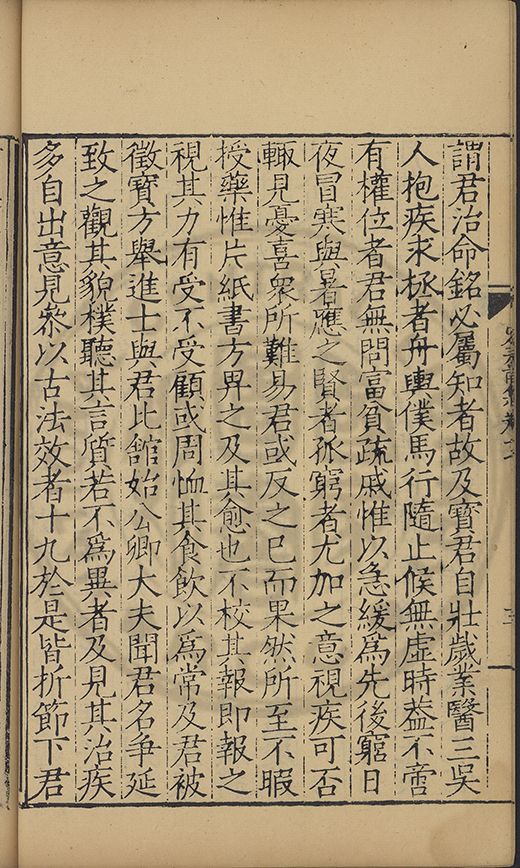 謂君治命銘必屬知者故及寳君自壯歲業醫三吳
人抱疾求拯者舟輿僕馬行隨止候無虛時葢不啻
有權位者君無問富貧疏戚惟以急緩爲先後窮日
夜冒寒與暑應之賢者孤窮者尤加之意視疾可否
輙見憂喜衆所難易君或反之巳而果然所至不暇
授藥惟片紙書方畀之及其愈也不校其報即報之
視其力有受不受顧或周恤其食飲以爲常及君被
徵寳方舉進士與君比舘始公卿大夫聞君名爭延
致之觀其貌樸聽其言質若不爲異者及見其治疾
多自出意見叅以古法效者十九於是皆折節下君